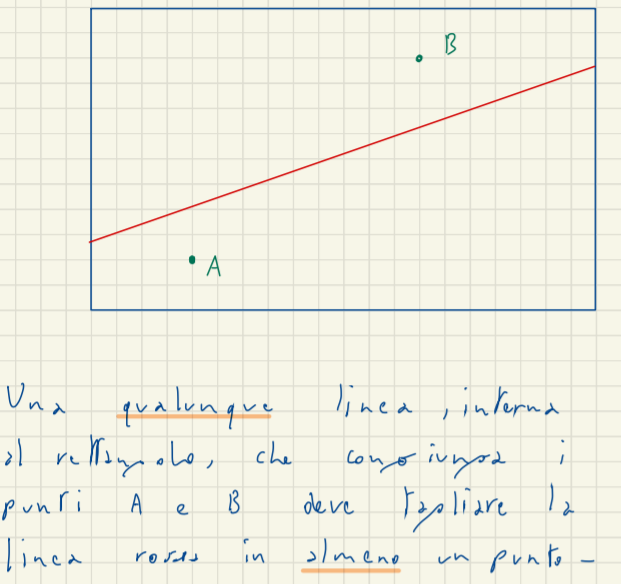 B
A
Una qualunque linea, interna
al rettangolo, che congiunga i
punti A e B deve tagliare la
linea rossa in almeno un punto-